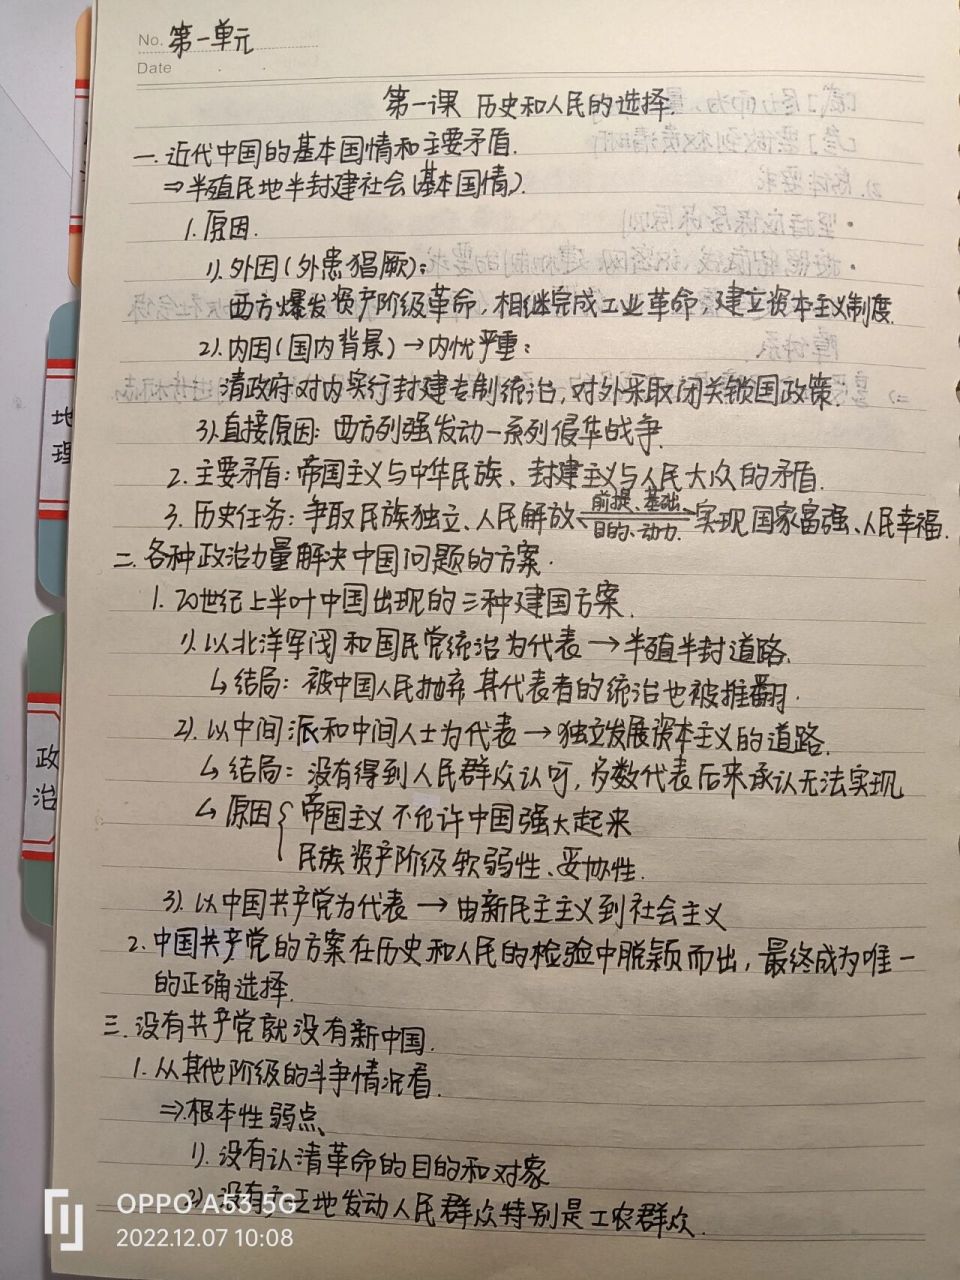 No. 第一单元
Date
第一课 历史和人民的选择.
一. 近代中国的基本国情和主要矛盾.
⇒半殖民地半封建社会(基本国情).
1. 原因.
1). 外因(外患猖厥):
西方爆发资产阶级革命, 相继完成工业革命, 建立资本主义制度.
2). 内因(国内背景)→内忧严重:
清政府对内实行封建专制统治, 对外采取闭关锁国政策.
3). 直接原因: 西方列强发动一系列侵华战争.
2. 主要矛盾: 帝国主义与中华民族、封建主义与人民大众的矛盾.
3. 历史任务: 争取民族独立、人民解放 前提、基础 目的、动力. 实现国家富强、人民幸福.
二. 各种政治力量解决中国问题的方案.
1. 20世纪上半叶中国出现的三种建国方案.
1). 以北洋军阀和国民党统治为代表→半殖半封道路.
↳结局: 被中国人民抛弃, 其代表者的统治也被推翻.
2). 以中间派和中间人士为代表→独立发展资本主义的道路.
↳结局: 没有得到人民群众认可, 多数代表后来承认无法实现
↳原因{帝国主义不允许中国强大起来
民族资产阶级软弱性、妥协性.
3). 以中国共产党为代表→由新民主主义到社会主义
2. 中国共产党的方案在历史和人民的检验中脱颖而出, 最终成为唯一
的正确选择.
三. 没有共产党就没有新中国.
1. 从其他阶级的斗争情况看.
⇒根本性弱点、
1). 没有认清革命的目的和对象
2). 没有广泛地发动人民群众特别是工农群众.
地理
政治
OPPO A53 5G
2022.12.07 10:08